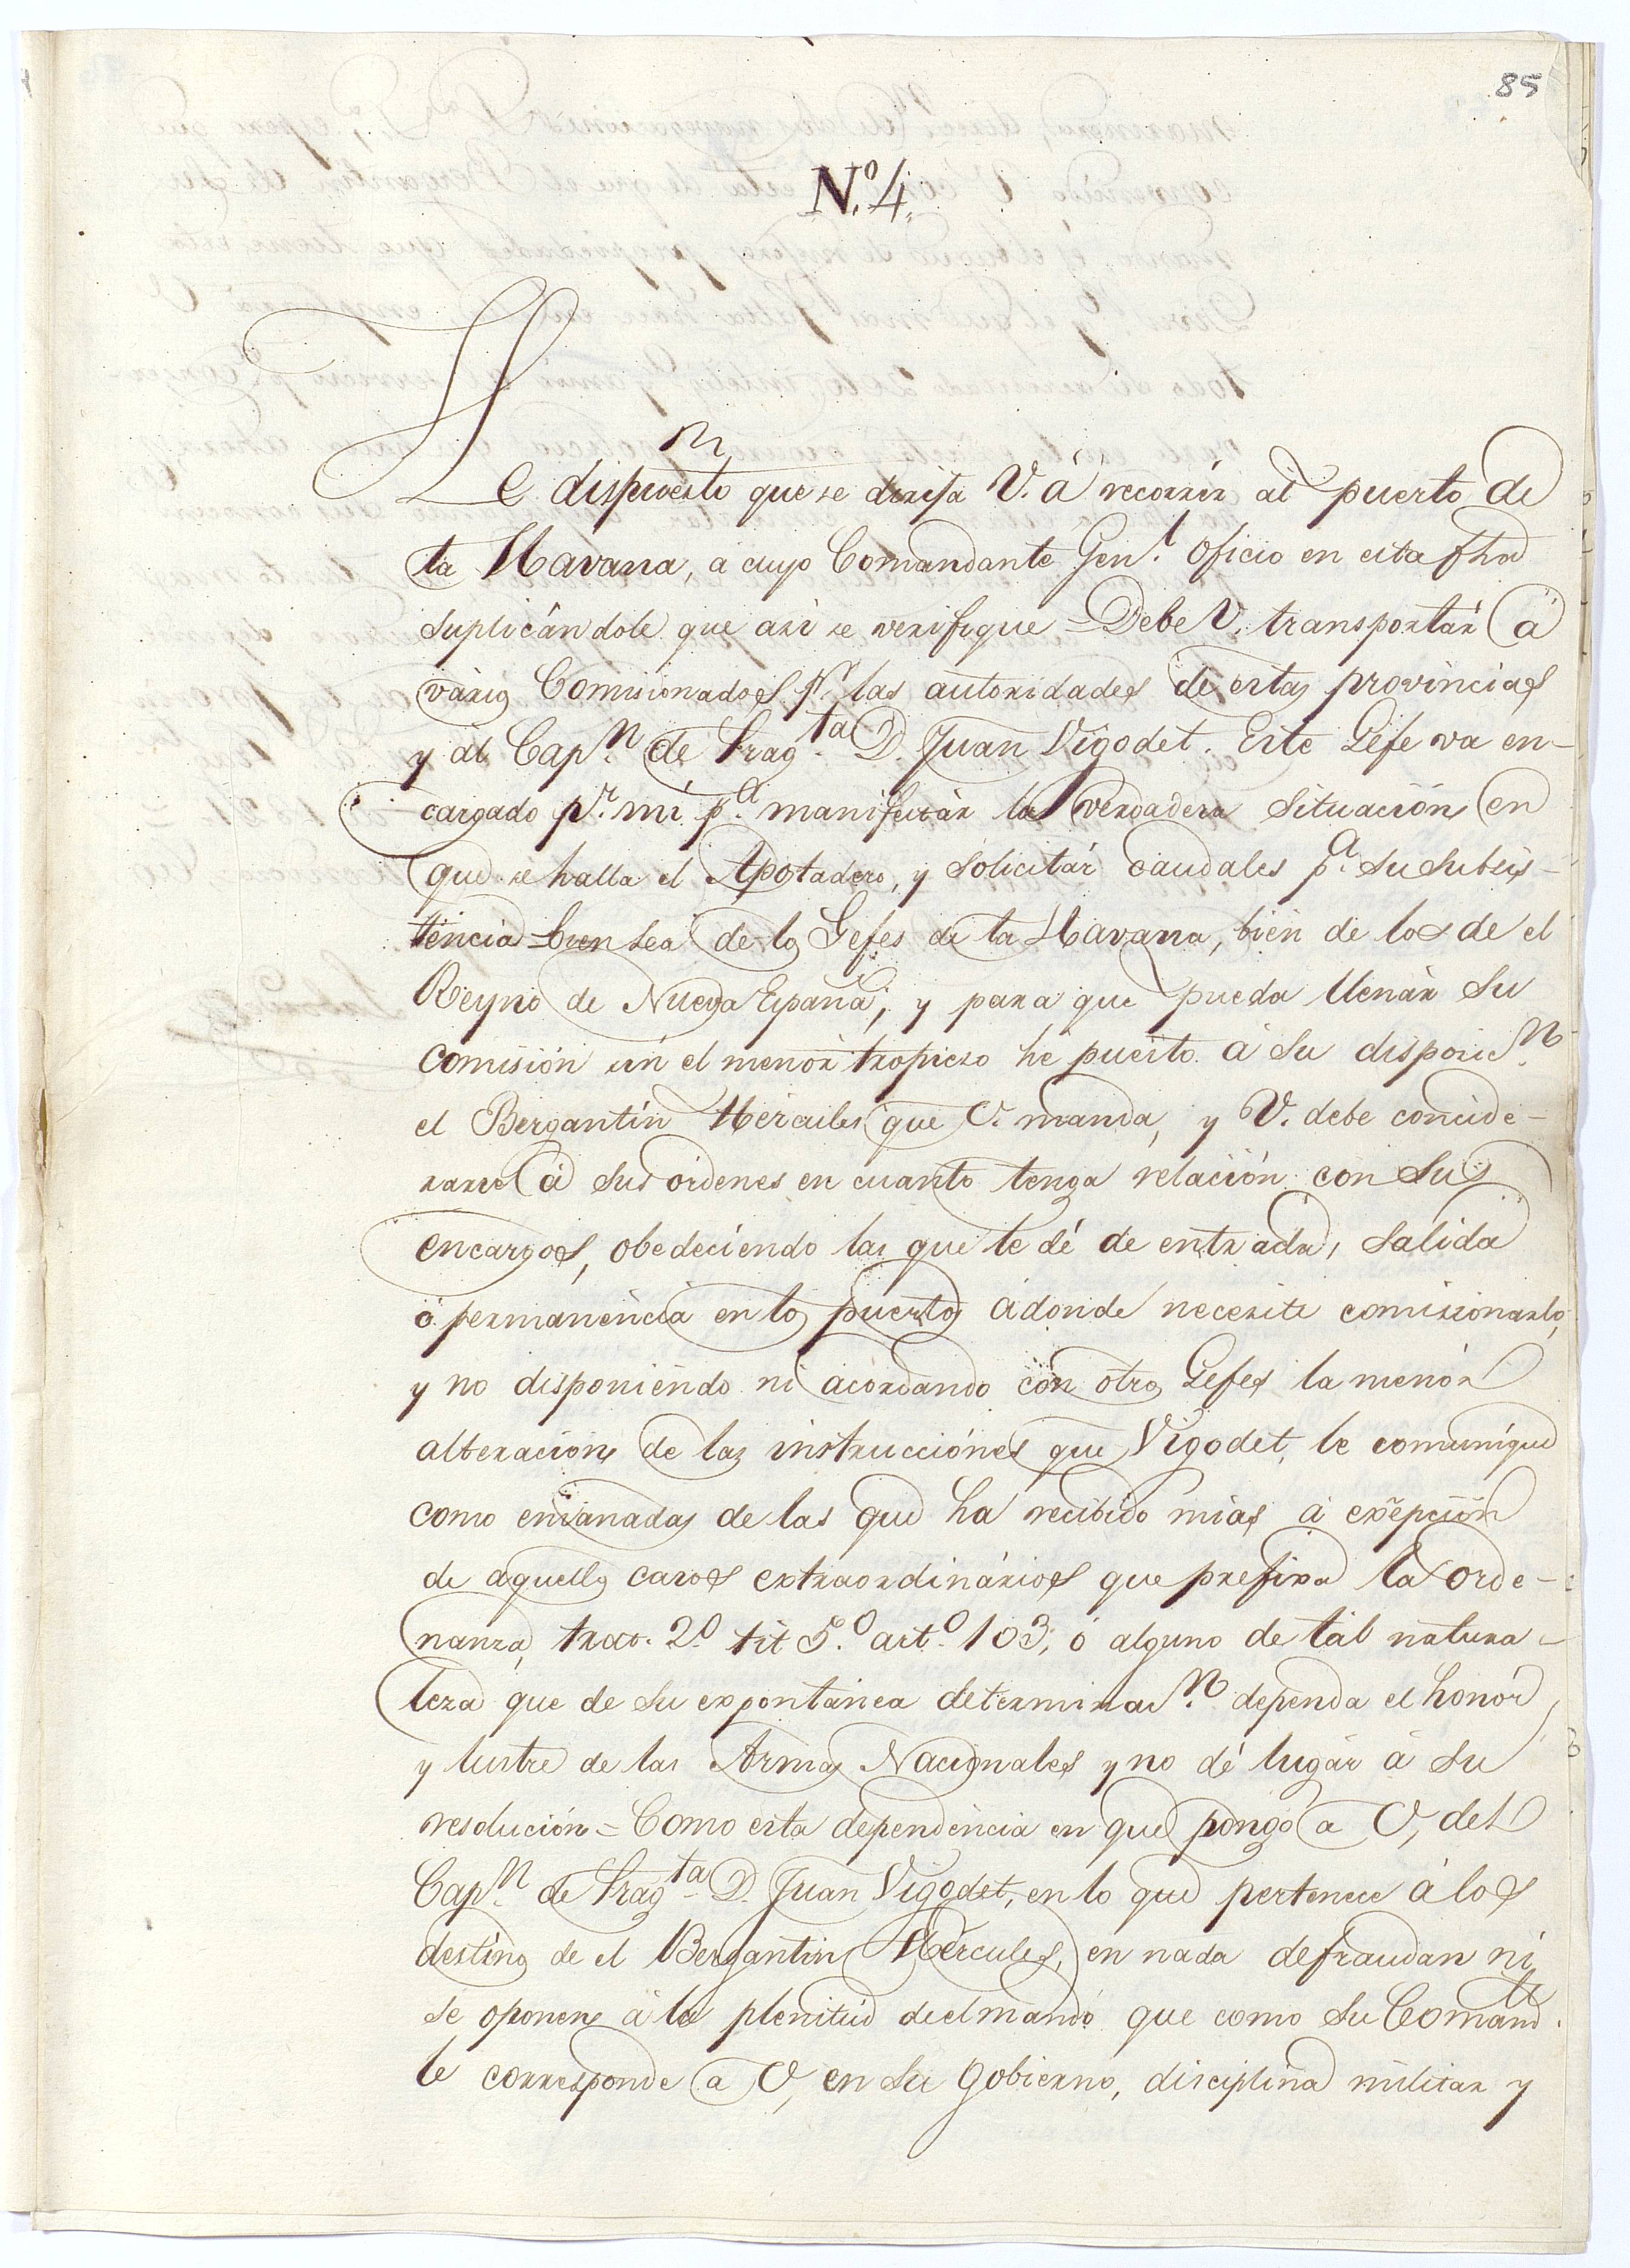 85
Nº. 4.
He dispuesto que se dirija V. á recorrer al puerto de
la Havana, a cuyo Comandante Gen.l oficio en esta fha
suplicándole que asi se verifique = Debe V. transportár á
vários Comisionados pr. las autoridades de estas provincias
y al Cap.n de Frag.ta D. Juan Vigodet. Este Gefe va en-
cargado p.r mi p.a manifestár la verdadera situación en
que se halla el Apostadero, y solicitár caudales p.a su subsis-
téncia bien sea de los Gefes de la Havana, bién de los de el
Reyno de Nueva España; y para que pueda llenár su
comisión sin el menór tropiezo hé puesto á su disposic.n
el Bergantín Hércules que V. manda, y V. debe conside-
rarse á sus órdenes en cuanto tenga relación con sus
encargos, obedeciendo las que le dé de entrada, salida
ó permanéncia en los puertos á donde necesite comisionarlo,
y no disponiéndo ni acordando cón otros Gefes la menór
alteración de las instrucciónes que Vigodet, le comuníque
como emanadas de las que ha recibido mias á exepción
de aquellos casos extraordinários que prefixa la orde-
nanza, trat. 2º tit 5.º art.º 103, ó alguno de tál natura-
leza que de su expontánea determinac.n dependa el honór
y lustre de las Armas Nacionales y no dé lugár á su
resolución = Como esta dependéncia en que pongo a V, del
Cap.n de Frag.ta D. Juan Vigodet, en lo que pertenece á los
destinos de el Bergantin Hércules, en nada defraudan ni
se oponen á la plenitúd de el mando que como su Comand.te
le corresponde a V, en su gobierno, disciplina militar y